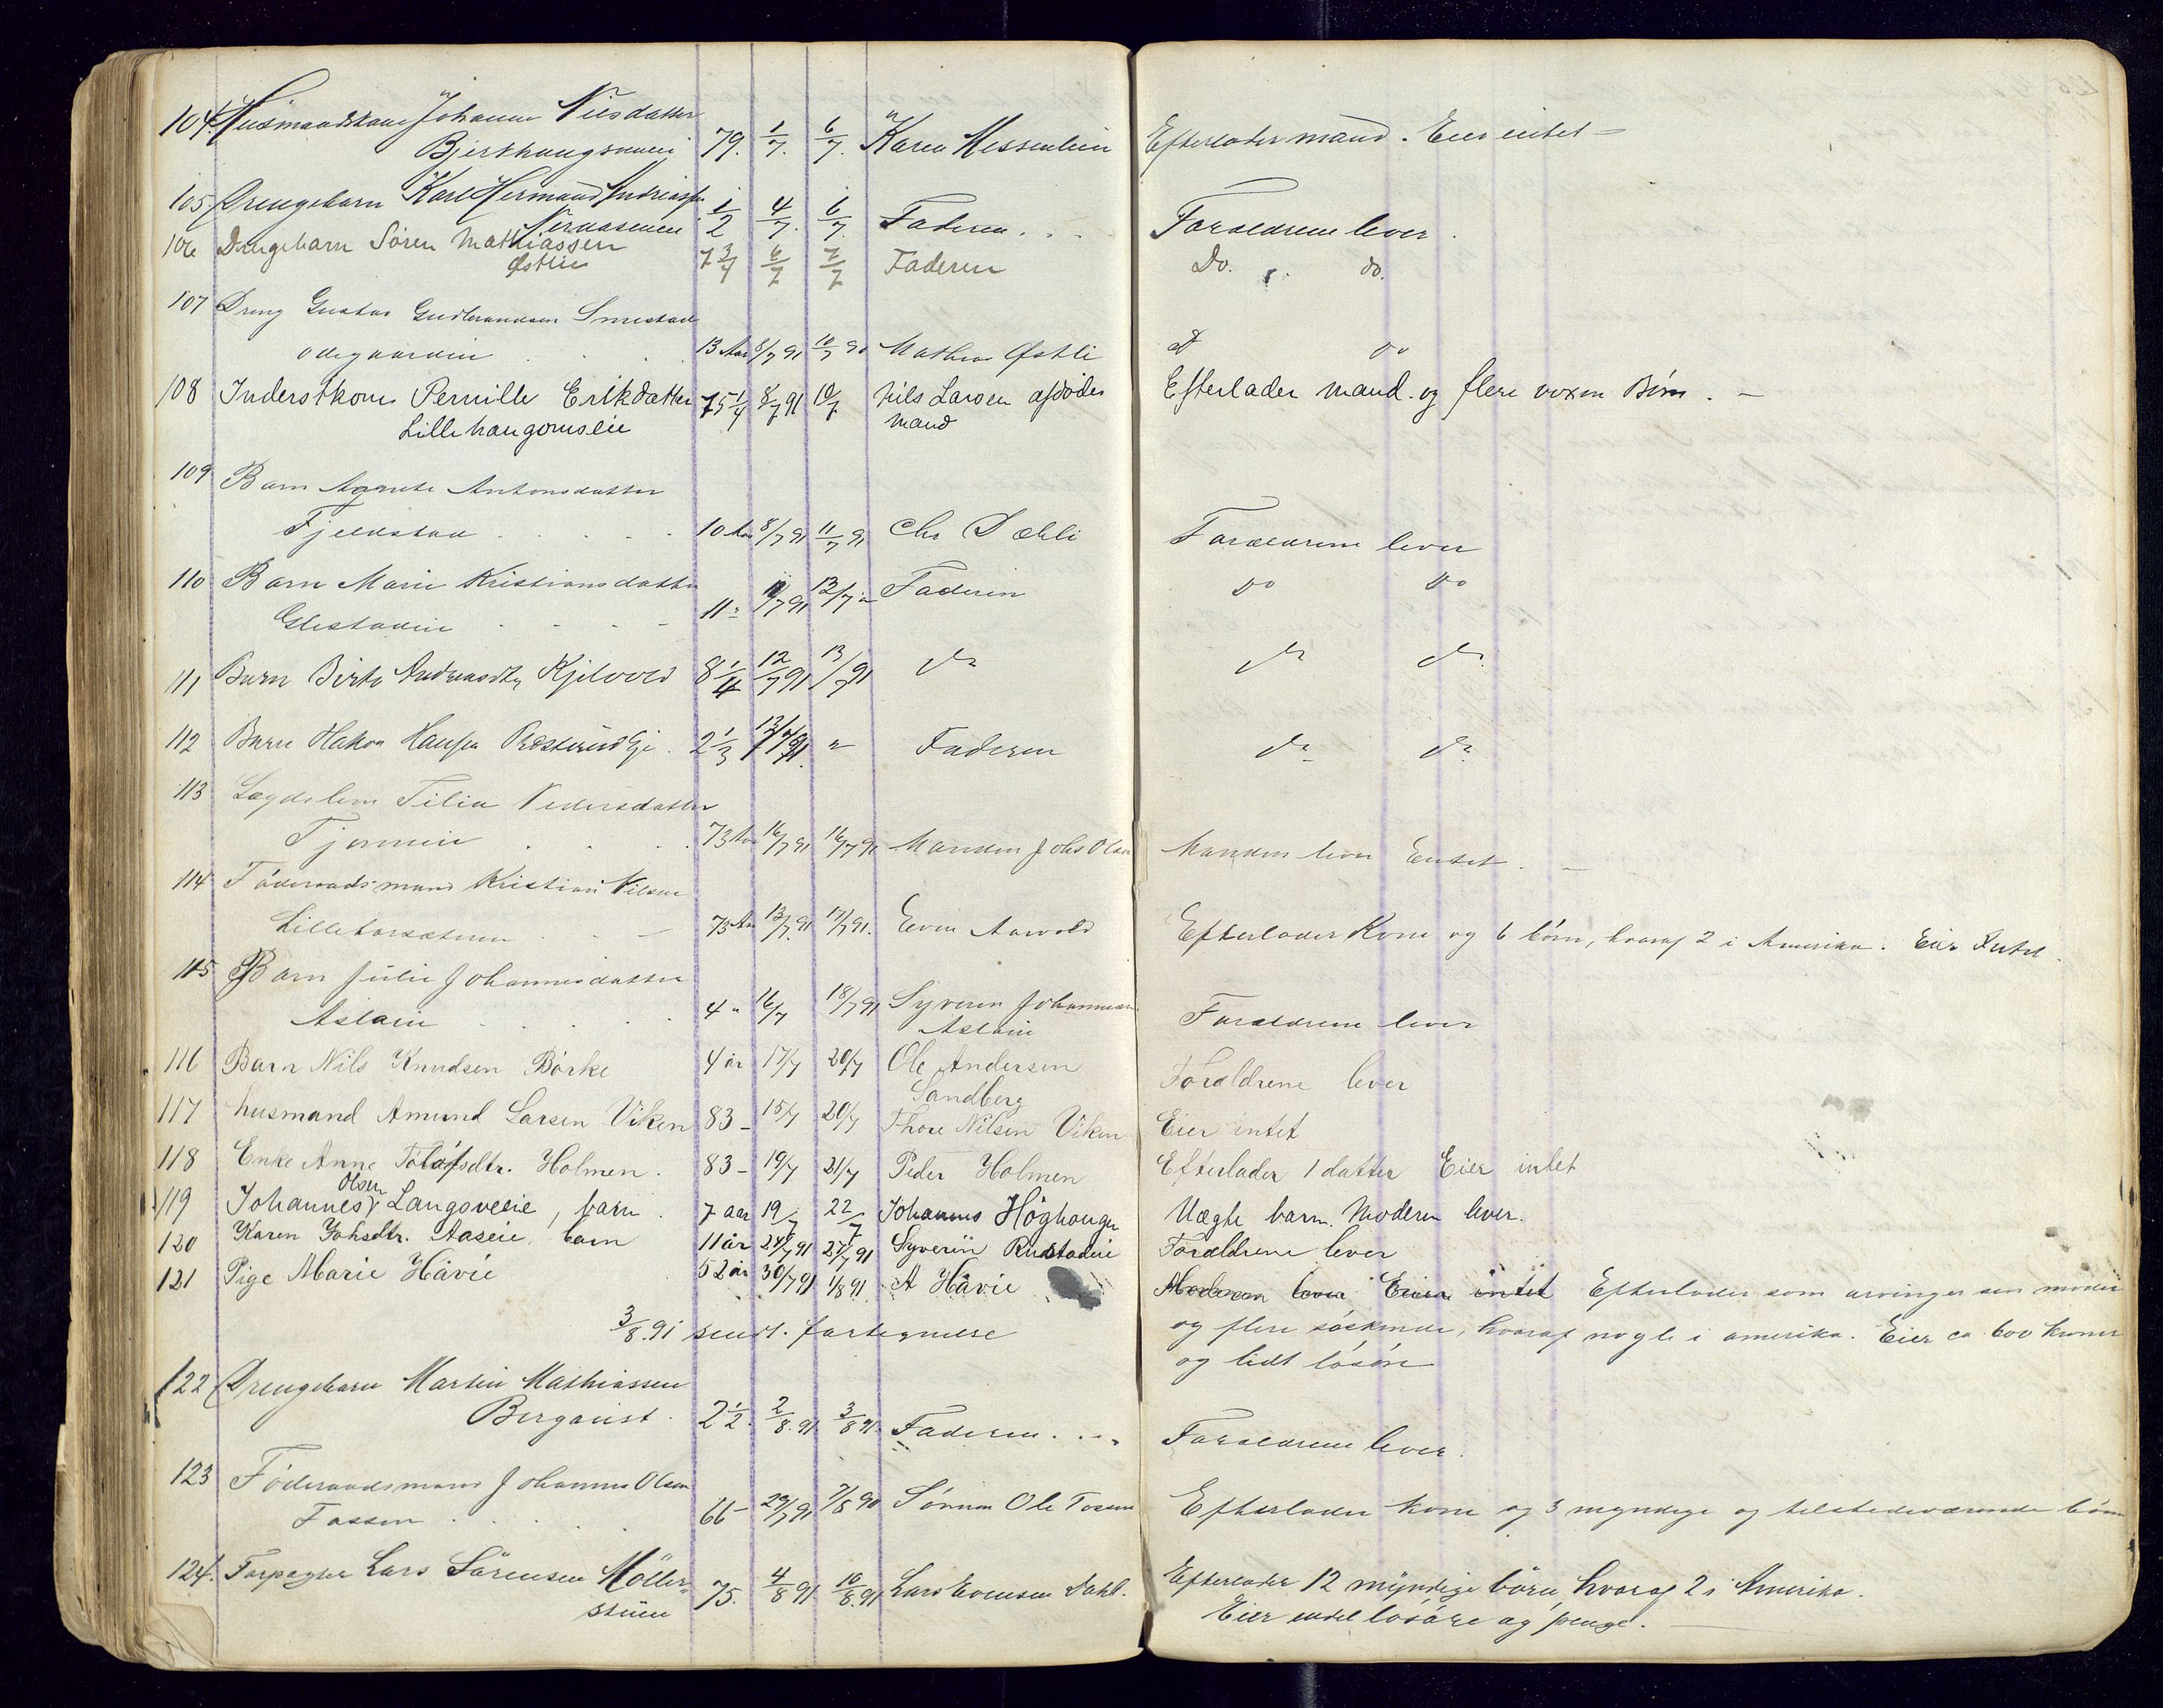 104. Husmandskone Johanne Nilsdatter
Bjerkhaugsneie 79. 1/7. 6/7. Karen Messenlien Efterlader mand. Eier intet –
105. Drengebarn Karl Herman Andreassen
1/2 4/7. 6/7. Faderen . . . Forældrene lever.
106 Drengebarn Søren Mathiassen
Østlie 7 3/4 6/7 7/7 Faderen Do. do.
107 Dreng Gustav Gudbrandsen Smestad
ødegaardeie 13 Aar 8/7 91 10/7 91 Mathias Østli do do
108 Inderstkone Pernille Erikdatter 75 1/4 8/7 91 10/7 Nils Larsen afdødes Efterlader mand og flere voxne Børn. –
Lillehaugomseie mand
109 Barn Agnete Antonsdatter
Fjeldstad 10 Aar 8/7 91 11/7 91 Chr Dæhli Forældrene lever
110 Barn Marie Kristiansdatter
Glestadeie 11 " 11/7 91 13/7 " Faderen do do
111 Barn Birte Andreasdtr Kjelvold 8 1/4 12/7 91 13/7 91 do do do
112 Barn Hakon Hansen Præsterudeje 2 1/3 13/7 91 " Faderen do do
113 Lægdslem Tilia Pedersdatter
73 Aar 16/7 91 16/7 91 Manden Johs Olsen Manden lever Eier intet. –
114 Föderaadsmand Kristian Nilsen
73 Aar 13/7 91 17/7 91. Even Aavold Efterlader Kone og 6 börn, hvoraf 2 i Amerika. Eier Intet.
115 Barn Julie Johannesdatter
Aslaeie 4 " 16/7 18/7 91 Syverin Johannesen Forældrene lever
Aslaeie
116 Barn Nils Knudsen Börke 4 år 17/7 20/7 Ole Andersen Forældrene lever
Sandberg
117 husmand Amund Larsen Viken 83 – 15/7 20/7 Thore Nilsen Viken Eier intet
118 Enke Anne Tolófsdtr. Holmen. 83 – 19/7 21/7 Peder Holmen Efterlader 1 datter Eier intet
119 Johannes Olsen Langsveeie, barn. 7 aar 19/7 22/7 Johannes Höghaugen Uægte barn. Moderen lever.
120 Karen Johsdtr. Aaseie, barn 11 år 24/7 91 27/7 91 Syverin Rustadeie Forældrene lever
121 Pige Marie Håvie 52 år 30/7 91 1/8 91 A Håvie Moderen lever Eier intet Efterlader som arvinger sin moder
og flere söskende, hvoraf nogle i amerika. Eier ca 600 kroner
og lidt lösöre
3/8. 91 sendt fortegnelse
122 Drengebarn Martin Mathiassen
Bergqvist. 2 1/2. 2/8. 91. 3/8 91. Faderen. . . . Forældrene lever.
123 Föderaadsmand Johannes Olsen
Fossen . . . 66 – 29/7 91 7/8 90 Sönnen Ole Fossen Efterlader kone og 3 myndige og tilstedeværende börn
124. Forpagter Lars Sörensen Möller-
stuen 75. 4/8 91. 10/8. 91 Lars Evensen Dahl. Efterlader 12 myndige börn, hvoraf 2 i Amerika.
Eier endel lösöre og penge. –